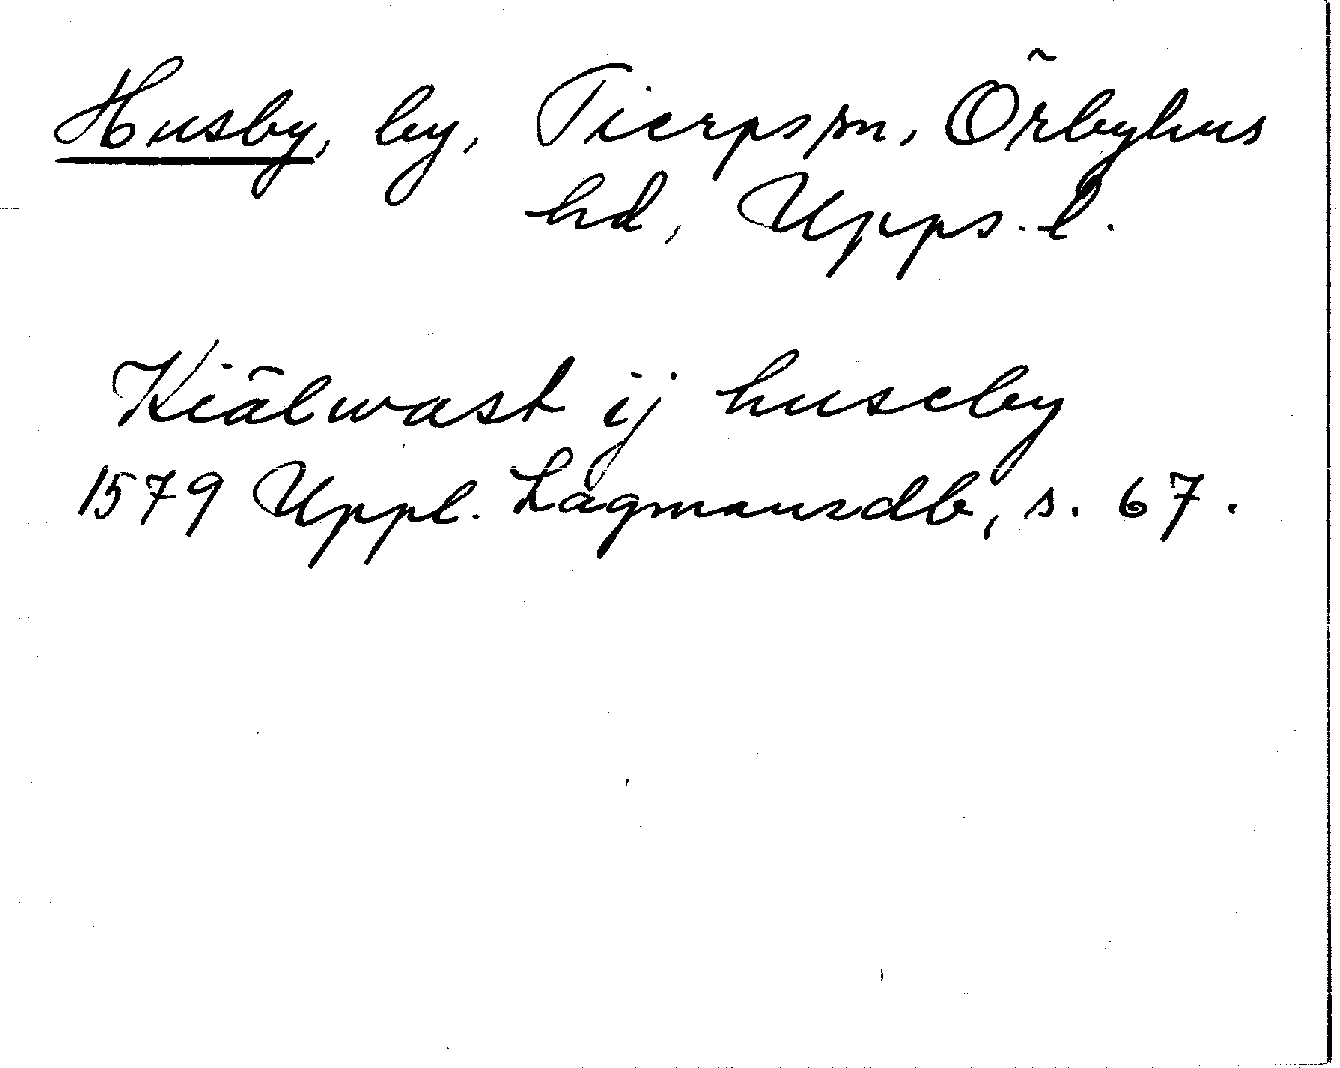 Husby, by, Tierps sn, Örbyhus
hd, Upps. l.
Kiälwast ij huseby
1579 Uppl. Lagmansdb, s. 67.